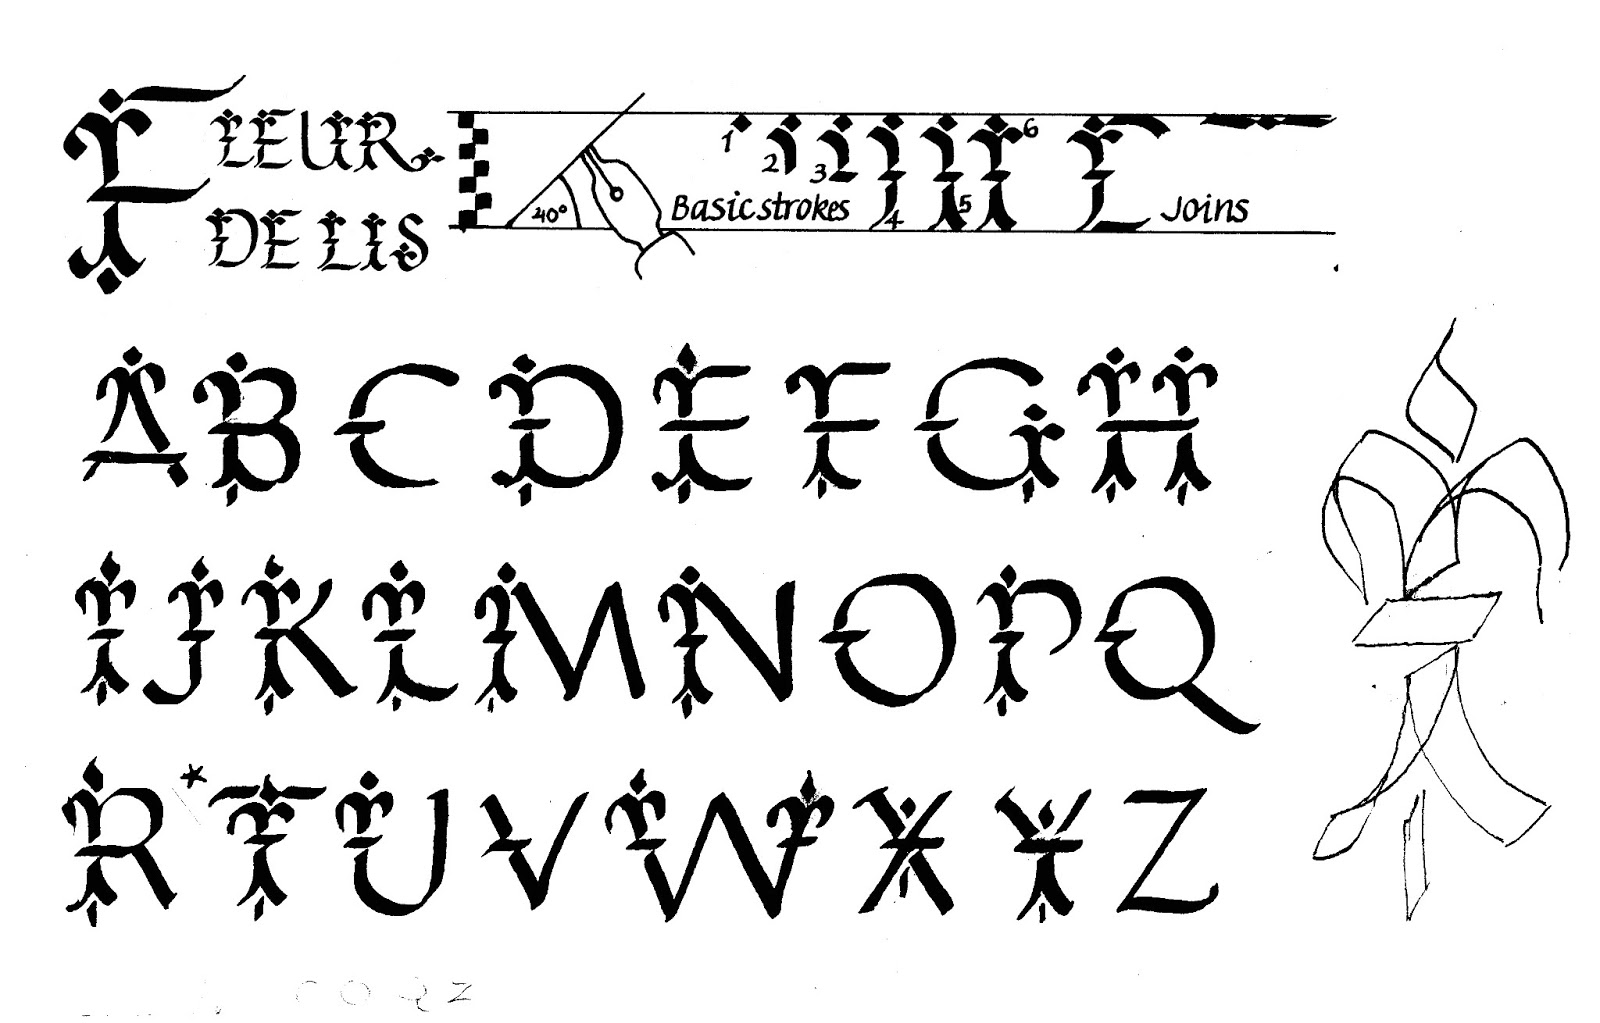 FLEUR.
DE LIS
40°
Basic strokes
1 2 3 4 5 6
Joins
A B C D E F G H
I J K L M N O P Q
R * T U V W X Y Z
C O Q Z